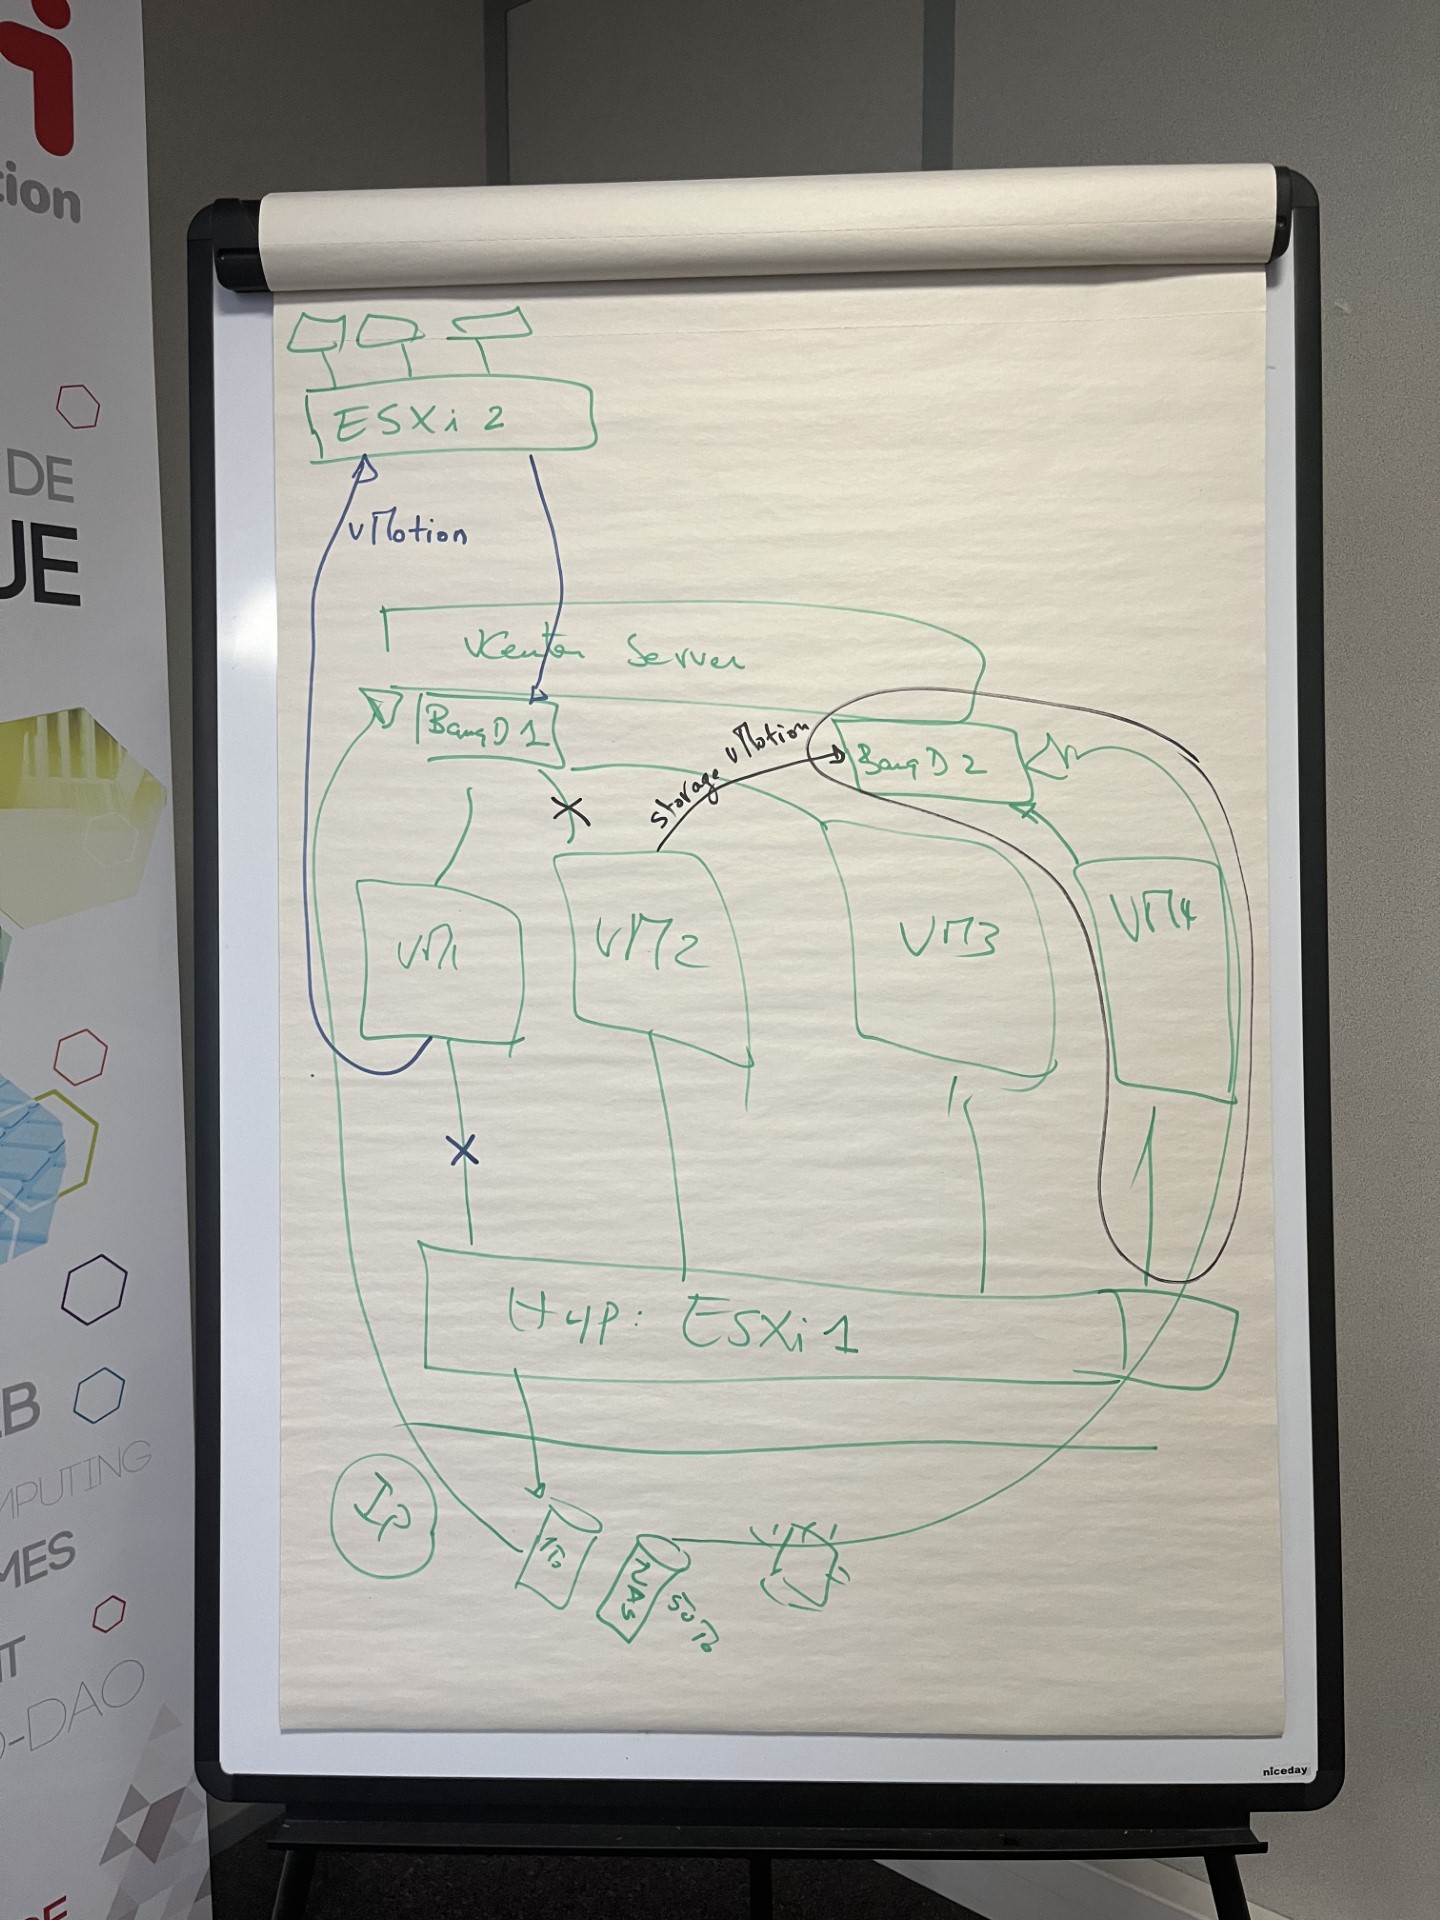 tion
DE
UE
B
MPUTING
MES
T
O-DAO
ESXi 2
vMotion
vCenter Server
BanqD 1
storage vMotion
BanqD 2
VM1
VM2
VM3
VM4
Hyp: ESXi 1
NAS
niceday